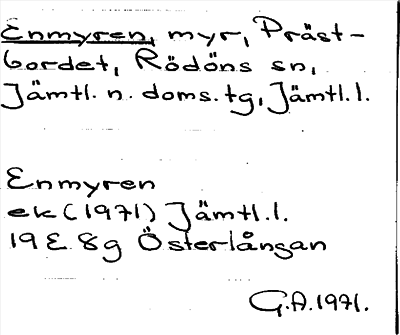 Enmyren, myr, Präst-
bordet, Rödöns sn,
Jämtl. n. doms. tg, Jämtl. l.
Enmyren
ek (1971) Jämtl. l.
19 E 8g Österlångan
G.A. 1971.